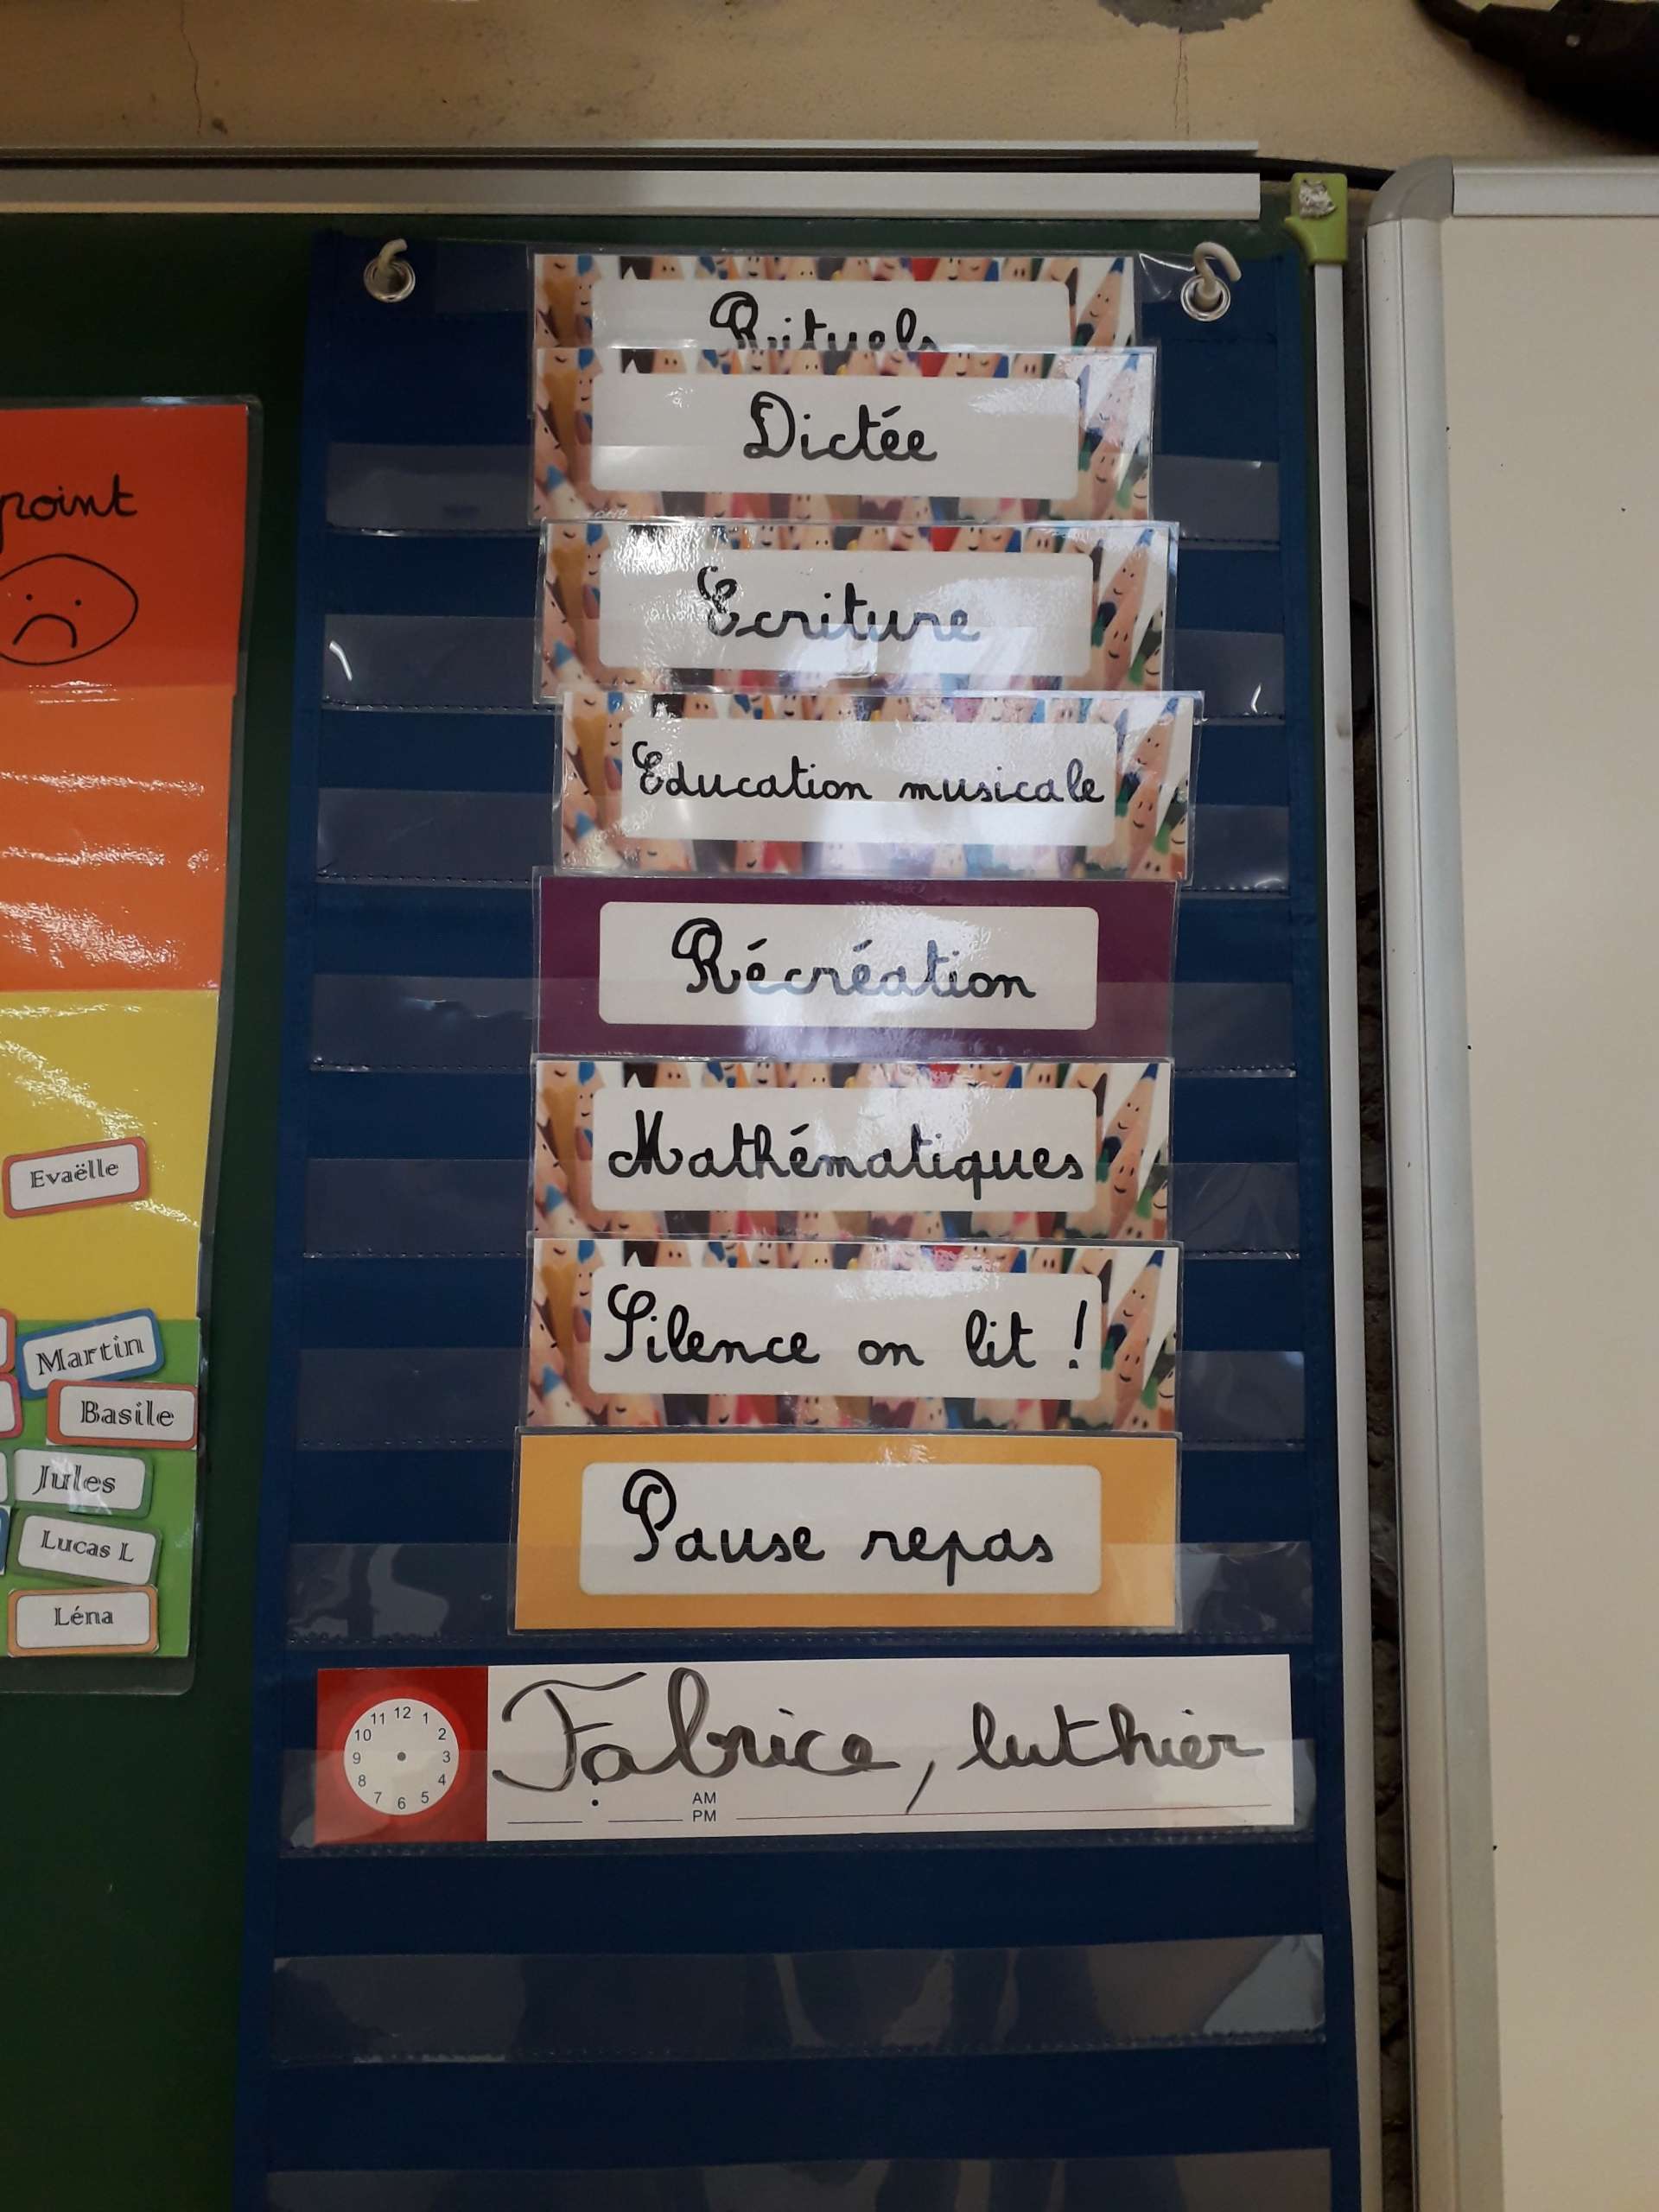 Rituels
Dictée
Ecriture
Education musicale
Récréation
Mathématiques
Silence on lit !
Pause repas
Fabrice, luthier
11 12 1
10 2
9 3
8 4
7 6 5
AM
PM
point
Evaëlle
Martin
Basile
Jules
Lucas L
Léna